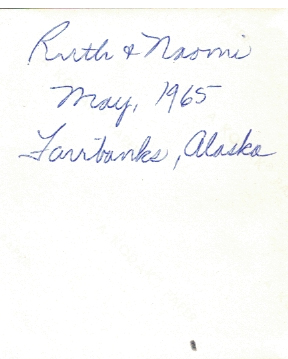 Ruth & Naomi
May, 1965
Fairbanks, Alaska